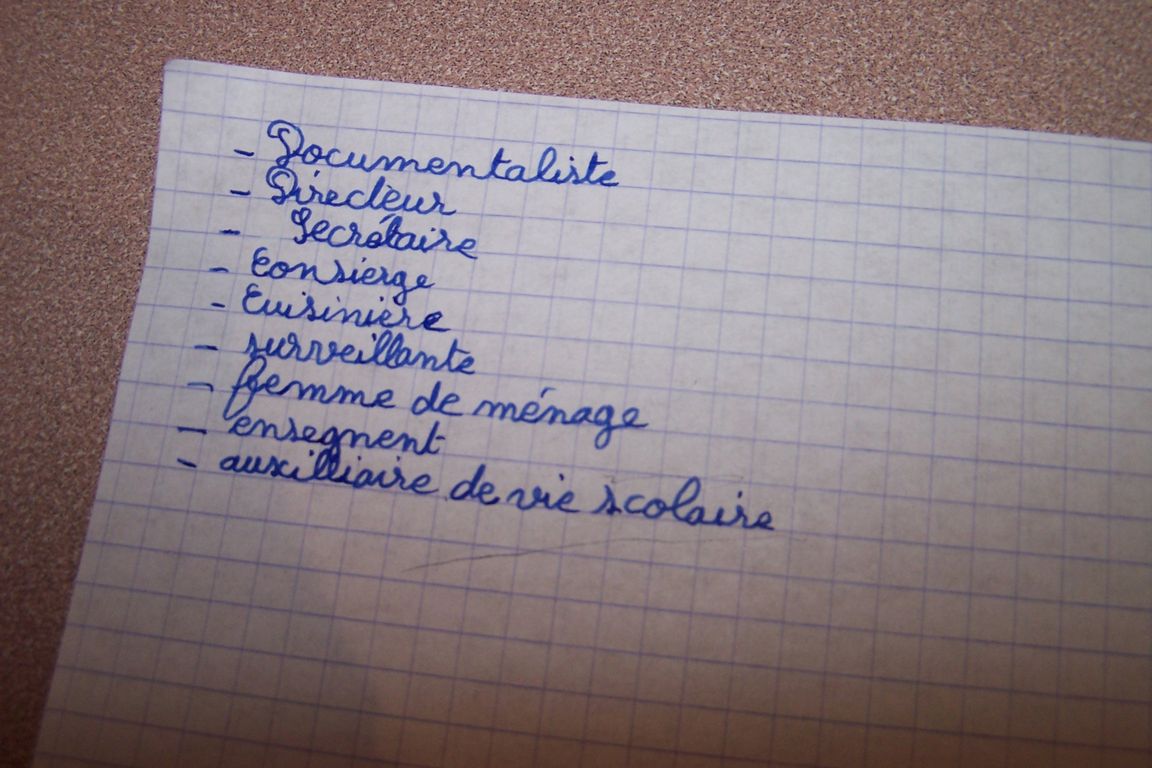 - Documentaliste
- Directeur
- Secrétaire
- Consierge
- Cuisinière
- surveillante
- femme de ménage
- ensegnent
- auxilliaire de vie scolaire